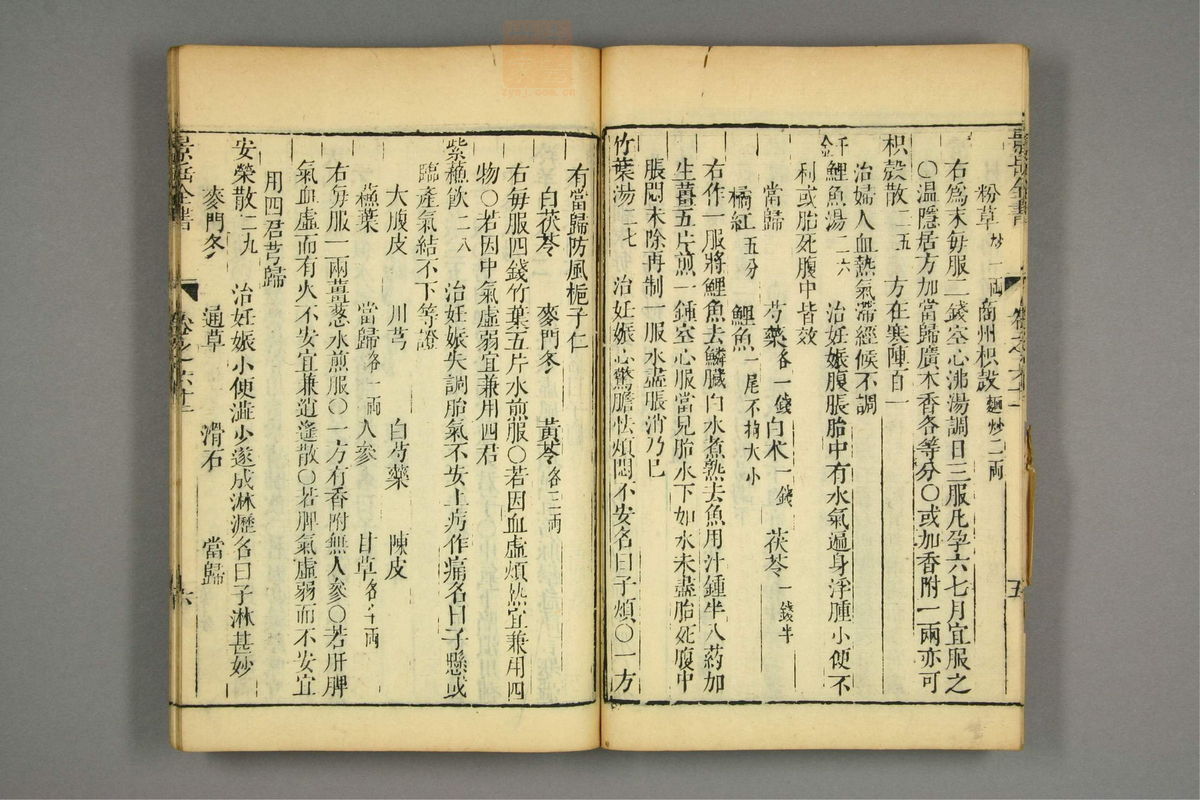 粉草炒一兩 商州枳殼麵炒二兩
右爲末每服二錢空心沸湯調日三服凡孕六七月宜服之
○溫隱居方加當歸廣木香各等分○或加香附一兩亦可
枳殼散二五 方在寒陣百一
治婦人血熱氣滯經候不調
千金鯉魚湯二六 治妊娠腹脹胎中有水氣遍身浮腫小便不
利或胎死腹中皆效
當歸 芍藥各一錢 白术二錢 茯苓一錢半
橘紅五分 鯉魚一尾不拘大小
右作一服將鯉魚去鱗臟白水煮熟去魚用汁鍾半入藥加
生薑五片煎一鍾空心服當見胎水下如水未盡胎死腹中
脹悶未除再制一服水盡脹消乃已
竹葉湯二七 治妊娠心驚膽怯煩悶不安名曰子煩○一方
有當歸防風梔子仁
白茯苓 麥門冬 黃芩各三兩
右每服四錢竹葉五片水煎服○若因血虛煩熱宜兼用四
物○若因中氣虛弱宜兼用四君
紫蘓飲二八 治妊娠失調胎氣不安上攻作痛名曰子懸或
臨產氣結不下等證
大腹皮 川芎 白芍藥 陳皮
蘓葉 當歸各一兩 人參 甘草各半兩
右每服一兩薑葱水煎服○一方有香附無人參○若肝脾
氣血虛而有火不安宜兼逍遙散○若脾氣虛弱而不安宜
用四君芎歸
安榮散二九 治妊娠小便澁少遂成淋瀝名曰子淋甚妙
麥門冬 通草 滑石 當歸
景岳全書
卷之六十一
六
景岳全書
卷之六十一
五
zyyj.com.cn